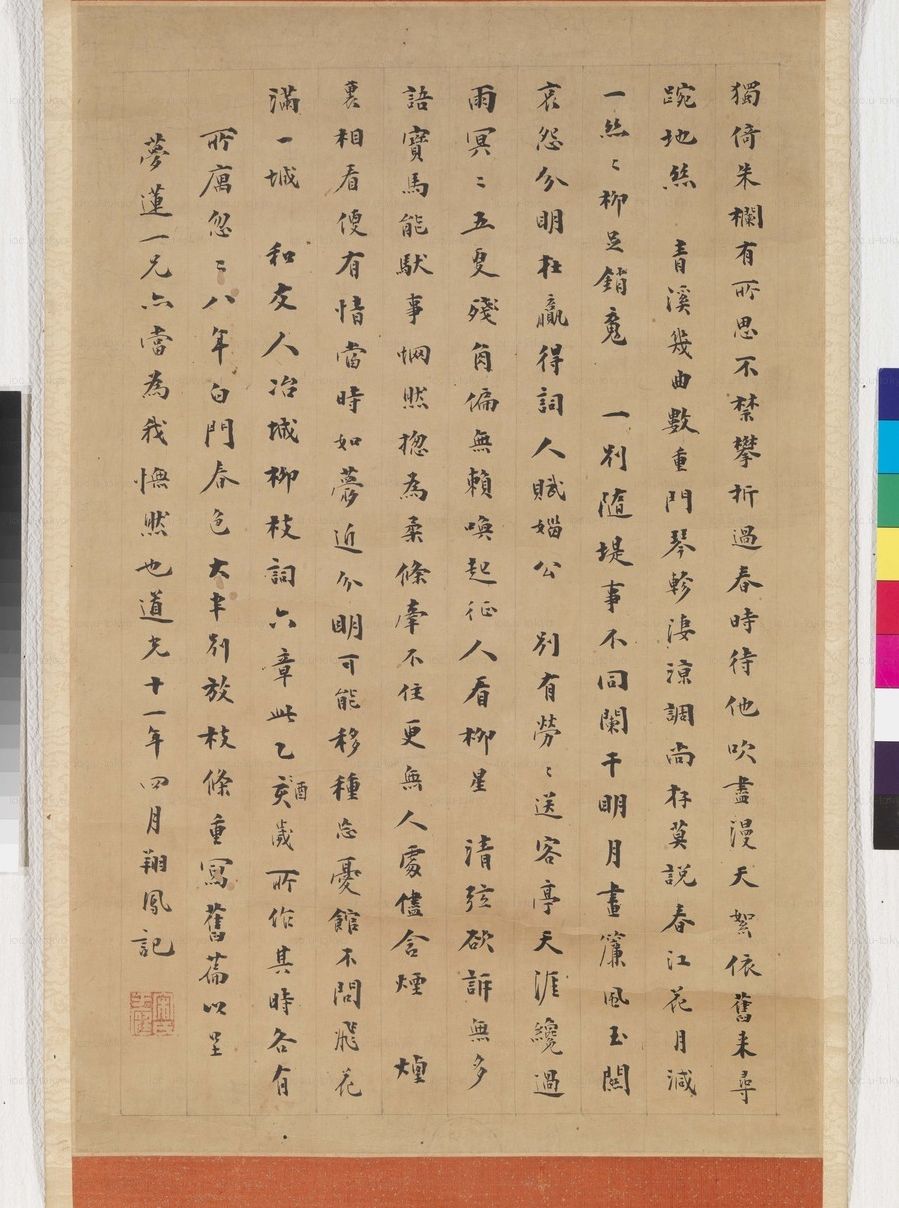 獨倚朱欄有所思不禁攀折過春時待他吹盡漫天絮依舊來尋
踠地絲　青溪幾曲數重門琴軫淒涼調尚存莫說春江花月減
一絲〻柳足銷魂　一別隨堤事不同闌干明月畫簾風玉關
哀怨分明在贏得詞人賦惱公　別有勞〻送客亭天涯纔過
雨冥〻五更殘角偏無賴喚起征人看柳星　清弦欲訴無多
語寶馬能馱事惘然揔為柔條牽不住更無人處儘含煙　煙
裏相看便有情當時如夢近分明可能移種忘憂館不問飛花
滿一城　和友人冶城柳枝詞六章此乙亥酉歲所作其時各有
所寓忽〻八年白門春色大半別放枝條重寫舊篇以呈
夢蓮一兄亦當為我憮然也道光十一年四月翔鳳記